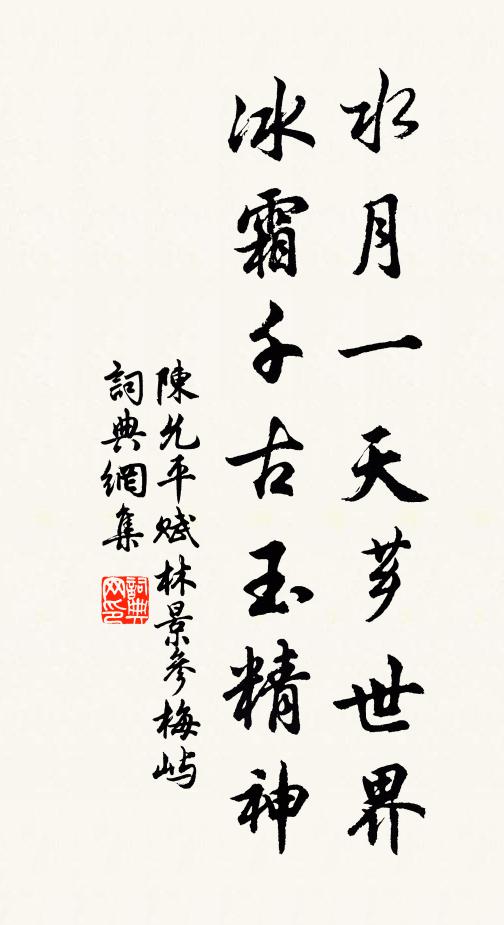 水月一天芗世界
冰霜千古玉精神
陳允平賦林景參梅屿
詞典網集
詞典网印